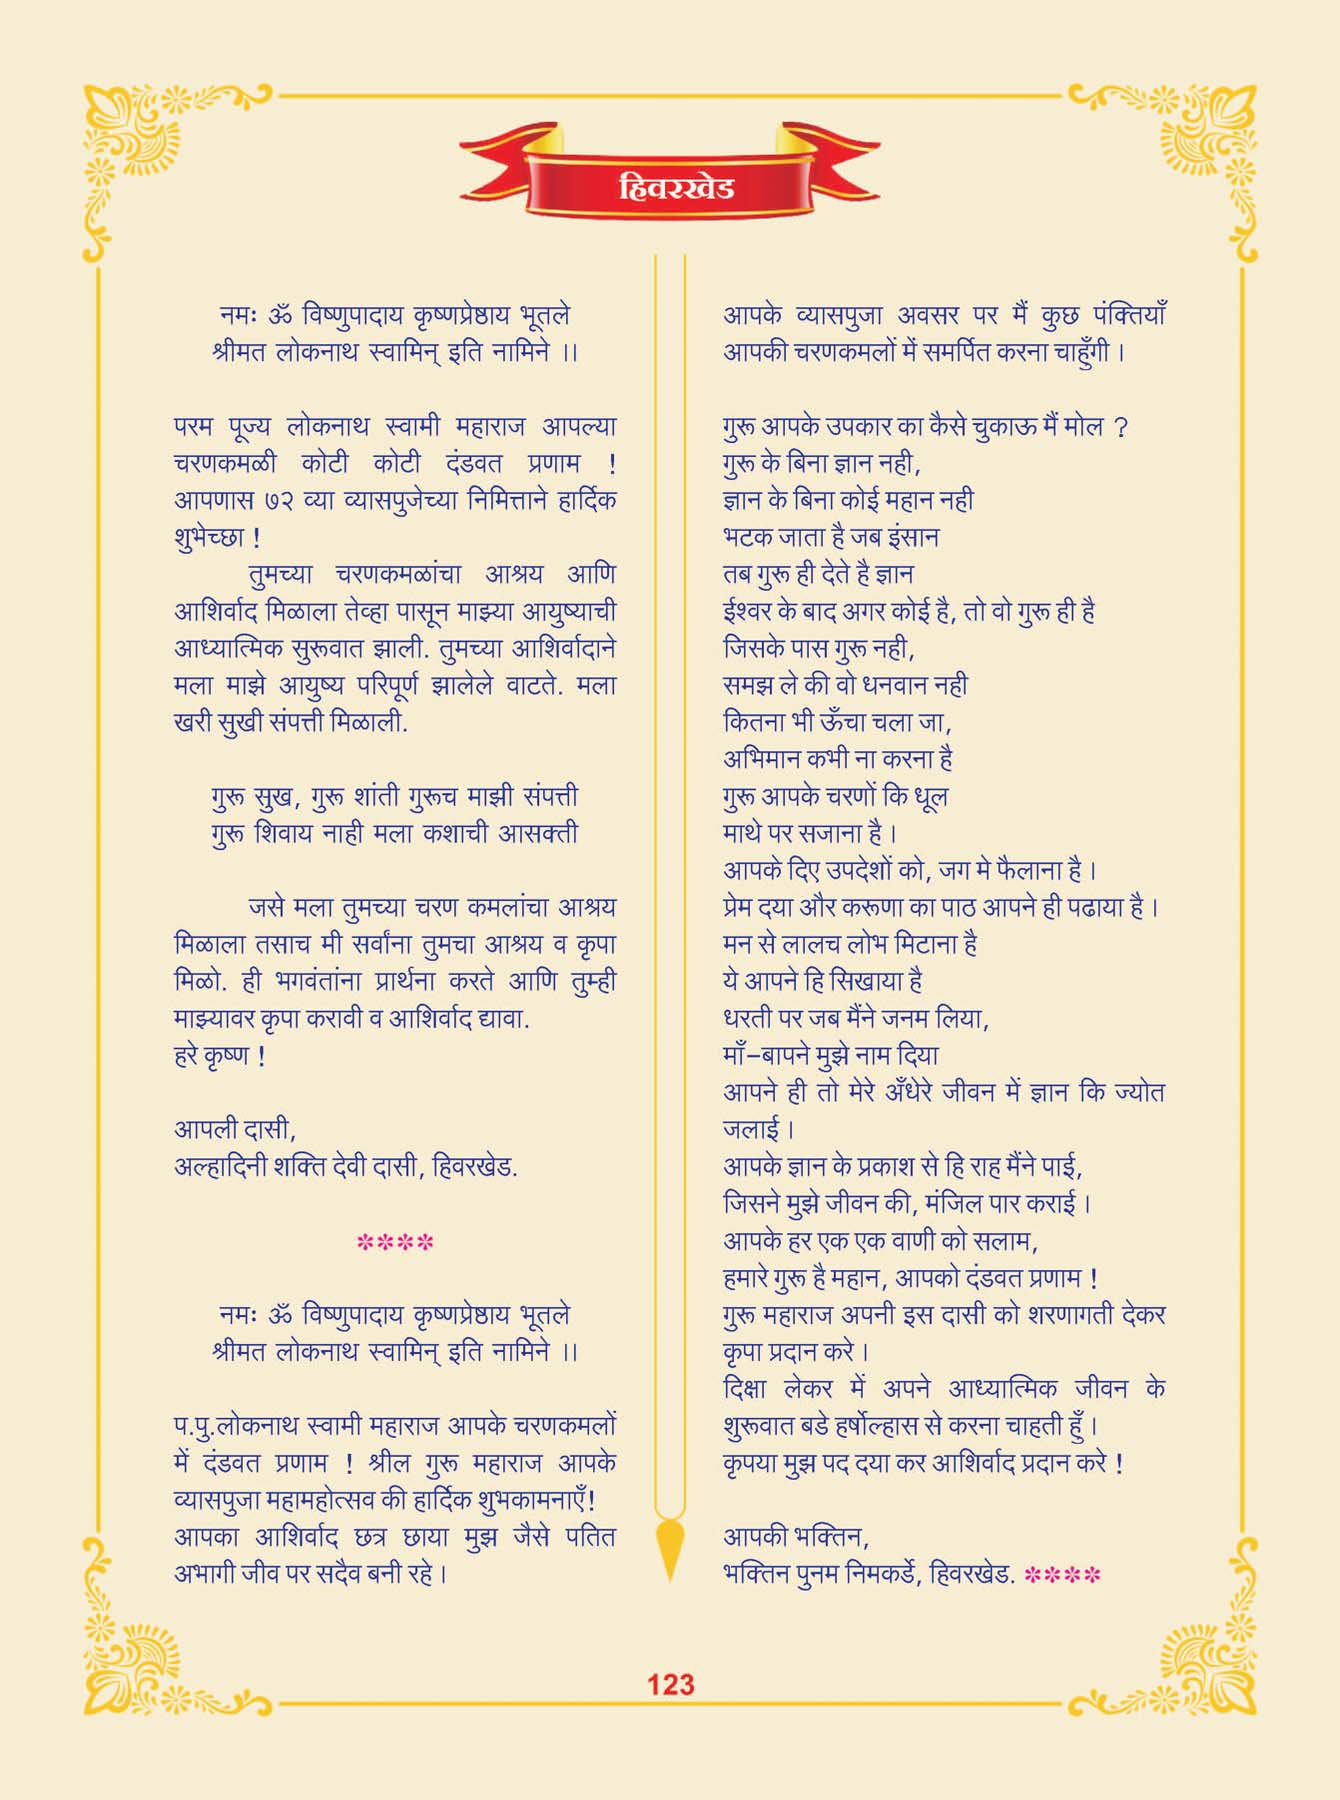 हिवरखेड
नमः ॐ विष्णुपादाय कृष्णप्रेष्ठाय भूतले
श्रीमत लोकनाथ स्वामिन् इति नामिने ।।
परम पूज्य लोकनाथ स्वामी महाराज आपल्या
चरणकमळी कोटी कोटी दंडवत प्रणाम !
आपणास ७२ व्या व्यासपुजेच्या निमित्ताने हार्दिक
शुभेच्छा !
तुमच्या चरणकमळांचा आश्रय आणि
आशिर्वाद मिळाला तेव्हा पासून माझ्या आयुष्याची
आध्यात्मिक सुरूवात झाली. तुमच्या आशिर्वादाने
मला माझे आयुष्य परिपूर्ण झालेले वाटते. मला
खरी सुखी संपत्ती मिळाली.
गुरू सुख, गुरू शांती गुरूच माझी संपत्ती
गुरू शिवाय नाही मला कशाची आसक्ती
जसे मला तुमच्या चरण कमलांचा आश्रय
मिळाला तसाच मी सर्वांना तुमचा आश्रय व कृपा
मिळो. ही भगवंतांना प्रार्थना करते आणि तुम्ही
माझ्यावर कृपा करावी व आशिर्वाद द्यावा.
हरे कृष्ण !
आपली दासी,
अल्हादिनी शक्ति देवी दासी, हिवरखेड.
****
नमः ॐ विष्णुपादाय कृष्णप्रेष्ठाय भूतले
श्रीमत लोकनाथ स्वामिन् इति नामिने ।।
प.पु.लोकनाथ स्वामी महाराज आपके चरणकमलों
में दंडवत प्रणाम ! श्रील गुरू महाराज आपके
व्यासपुजा महामहोत्सव की हार्दिक शुभकामनाएँ!
आपका आशिर्वाद छत्र छाया मुझ जैसे पतित
अभागी जीव पर सदैव बनी रहे ।
आपके व्यासपुजा अवसर पर मैं कुछ पंक्तियाँ
आपकी चरणकमलों में समर्पित करना चाहुँगी ।
गुरू आपके उपकार का कैसे चुकाऊ मैं मोल ?
गुरू के बिना ज्ञान नही,
ज्ञान के बिना कोई महान नही
भटक जाता है जब इंसान
तब गुरू ही देते है ज्ञान
ईश्वर के बाद अगर कोई है, तो वो गुरू ही है
जिसके पास गुरू नही,
समझ ले की वो धनवान नही
कितना भी ऊँचा चला जा,
अभिमान कभी ना करना है
गुरू आपके चरणों कि धूल
माथे पर सजाना है ।
आपके दिए उपदेशों को, जग मे फैलाना है ।
प्रेम दया और करूणा का पाठ आपने ही पढाया है ।
मन से लालच लोभ मिटाना है
ये आपने हि सिखाया है
धरती पर जब मैंने जनम लिया,
माँ-बापने मुझे नाम दिया
आपने ही तो मेरे अँधेरे जीवन में ज्ञान कि ज्योत
जलाई ।
आपके ज्ञान के प्रकाश से हि राह मैंने पाई,
जिसने मुझे जीवन की, मंजिल पार कराई ।
आपके हर एक एक वाणी को सलाम,
हमारे गुरू है महान, आपको दंडवत प्रणाम !
गुरू महाराज अपनी इस दासी को शरणागती देकर
कृपा प्रदान करे ।
दिक्षा लेकर में अपने आध्यात्मिक जीवन के
शुरूवात बडे हर्षोल्हास से करना चाहती हुँ ।
कृपया मुझ पद दया कर आशिर्वाद प्रदान करे !
आपकी भक्तिन,
भक्तिन पुनम निमकर्डे, हिवरखेड. ****
123